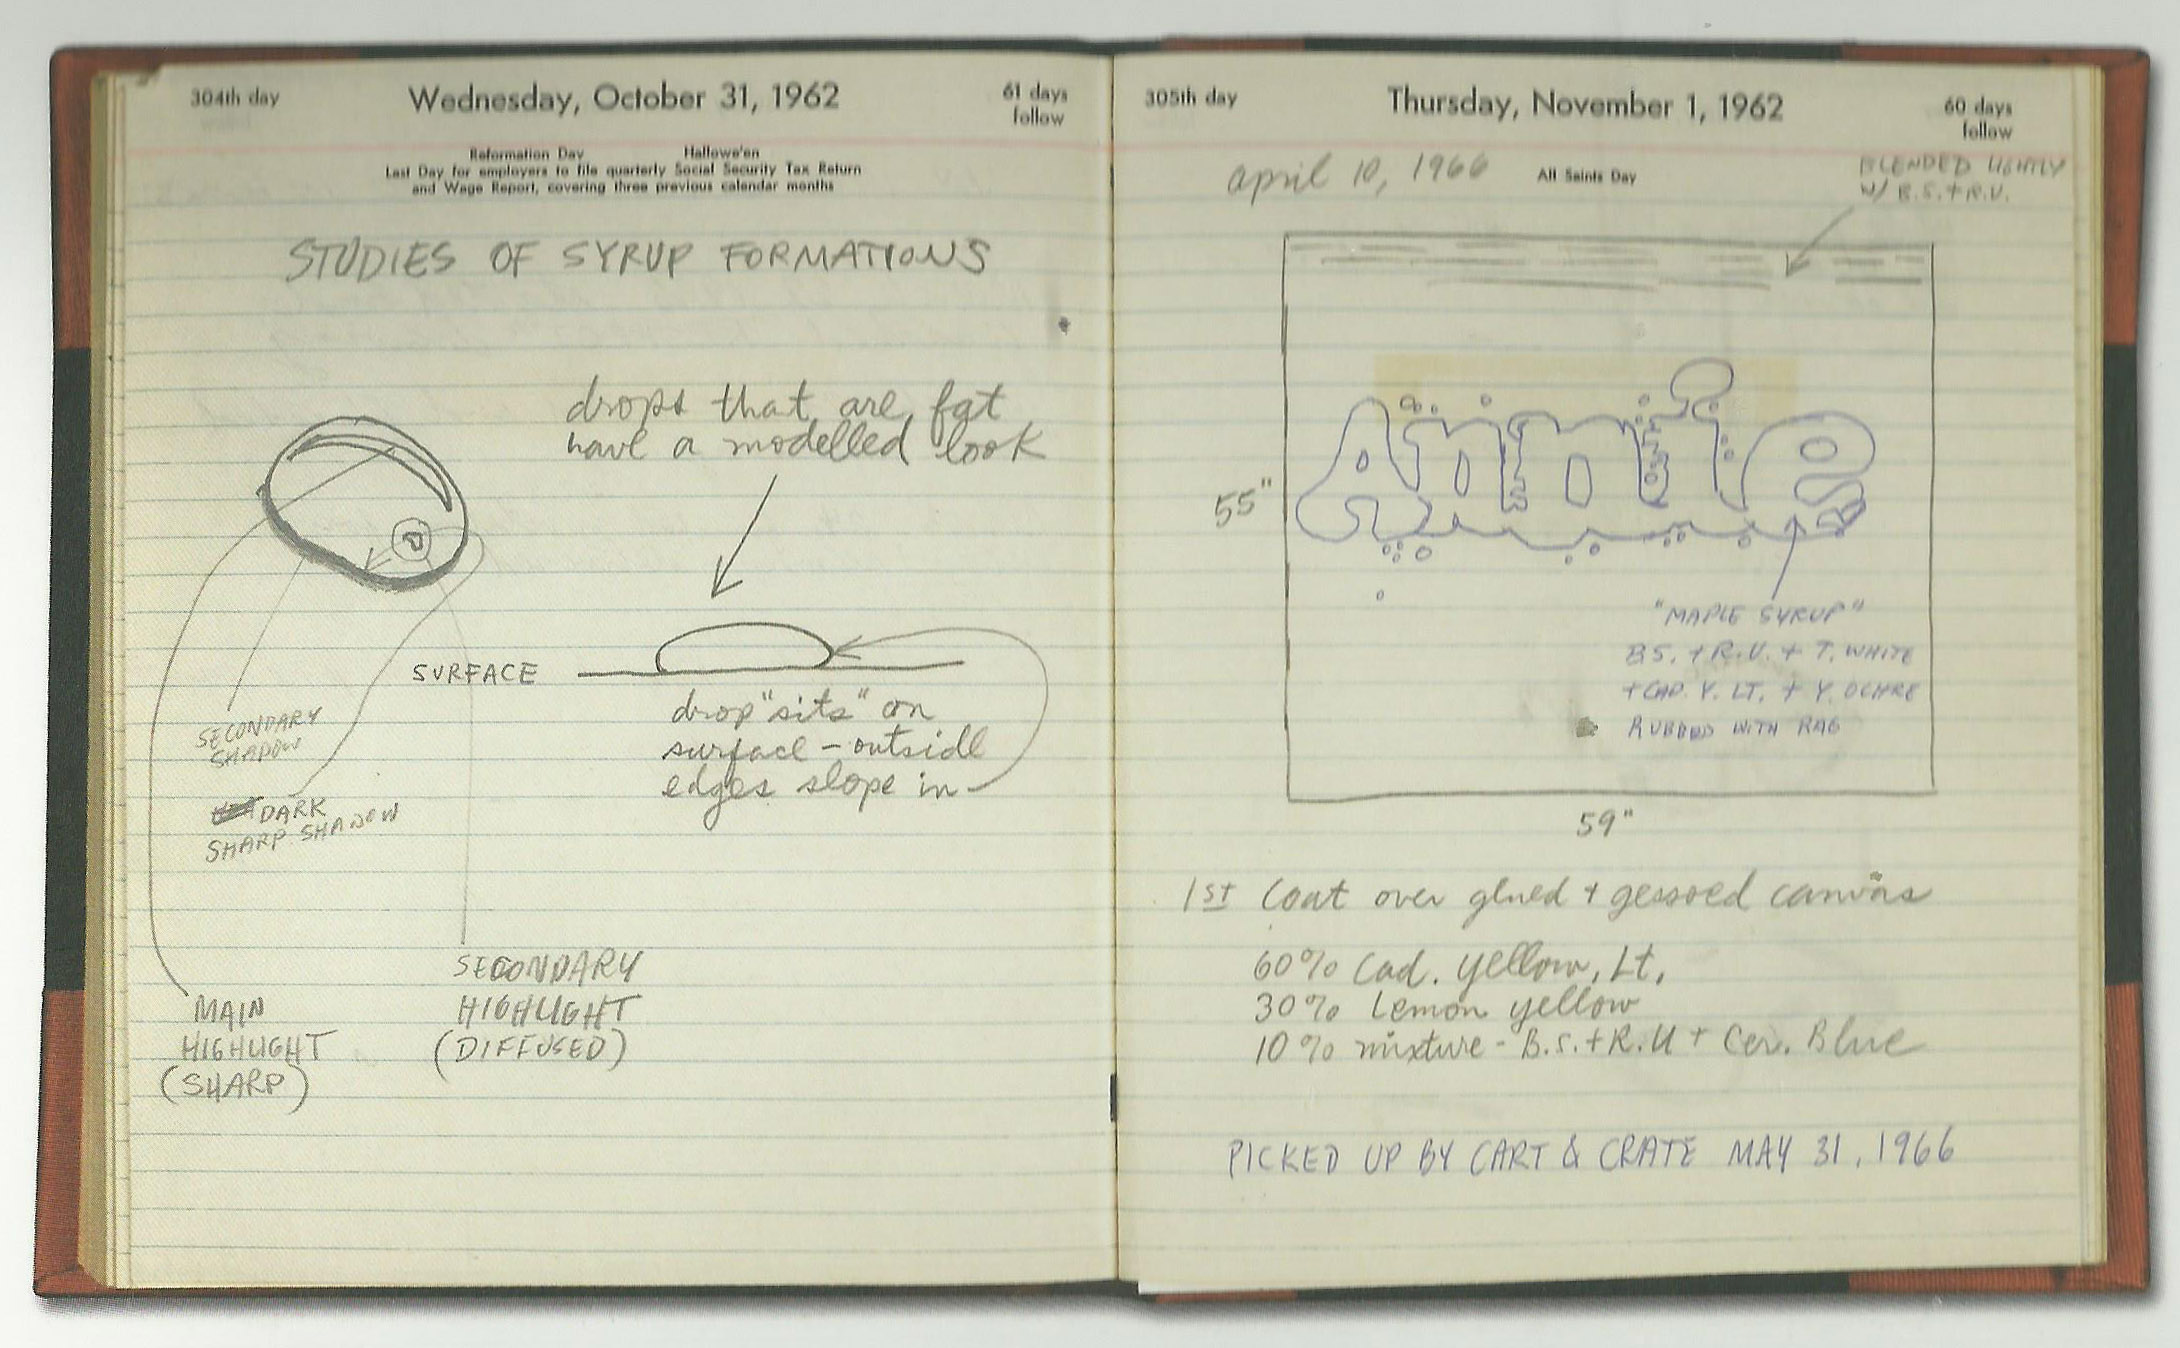 304th day
Wednesday, October 31, 1962
61 days
follow
Reformation Day Hallowe'en
Last Day for employers to file quarterly Social Security Tax Return
and Wage Report, covering three previous calendar months
STUDIES OF SYRUP FORMATIONS
drops that are fat
have a modelled look
SURFACE
drop "sits" on
surface – outside
edges slope in
SECONDARY
SHADOW
DARK
SHARP SHADOW
MAIN
HIGHLIGHT
(SHARP)
SECONDARY
HIGHLIGHT
(DIFFUSED)
305th day
Thursday, November 1, 1962
60 days
follow
april 10, 1966
All Saints Day
BLENDED LIGHTLY
W/ B.S. + R.U.
Annie
55"
"MAPLE SYRUP"
B.S. + R.U. + T. WHITE
+ CAD. Y. LT. + Y. OCHRE
RUBBED WITH RAG
59"
1st Coat over glued + gessoed canvas
60% Cad. yellow, Lt.
30% Lemon yellow
10% mixture - B.S. + R.U + Cer. Blue
PICKED UP BY CART & CRATE MAY 31, 1966